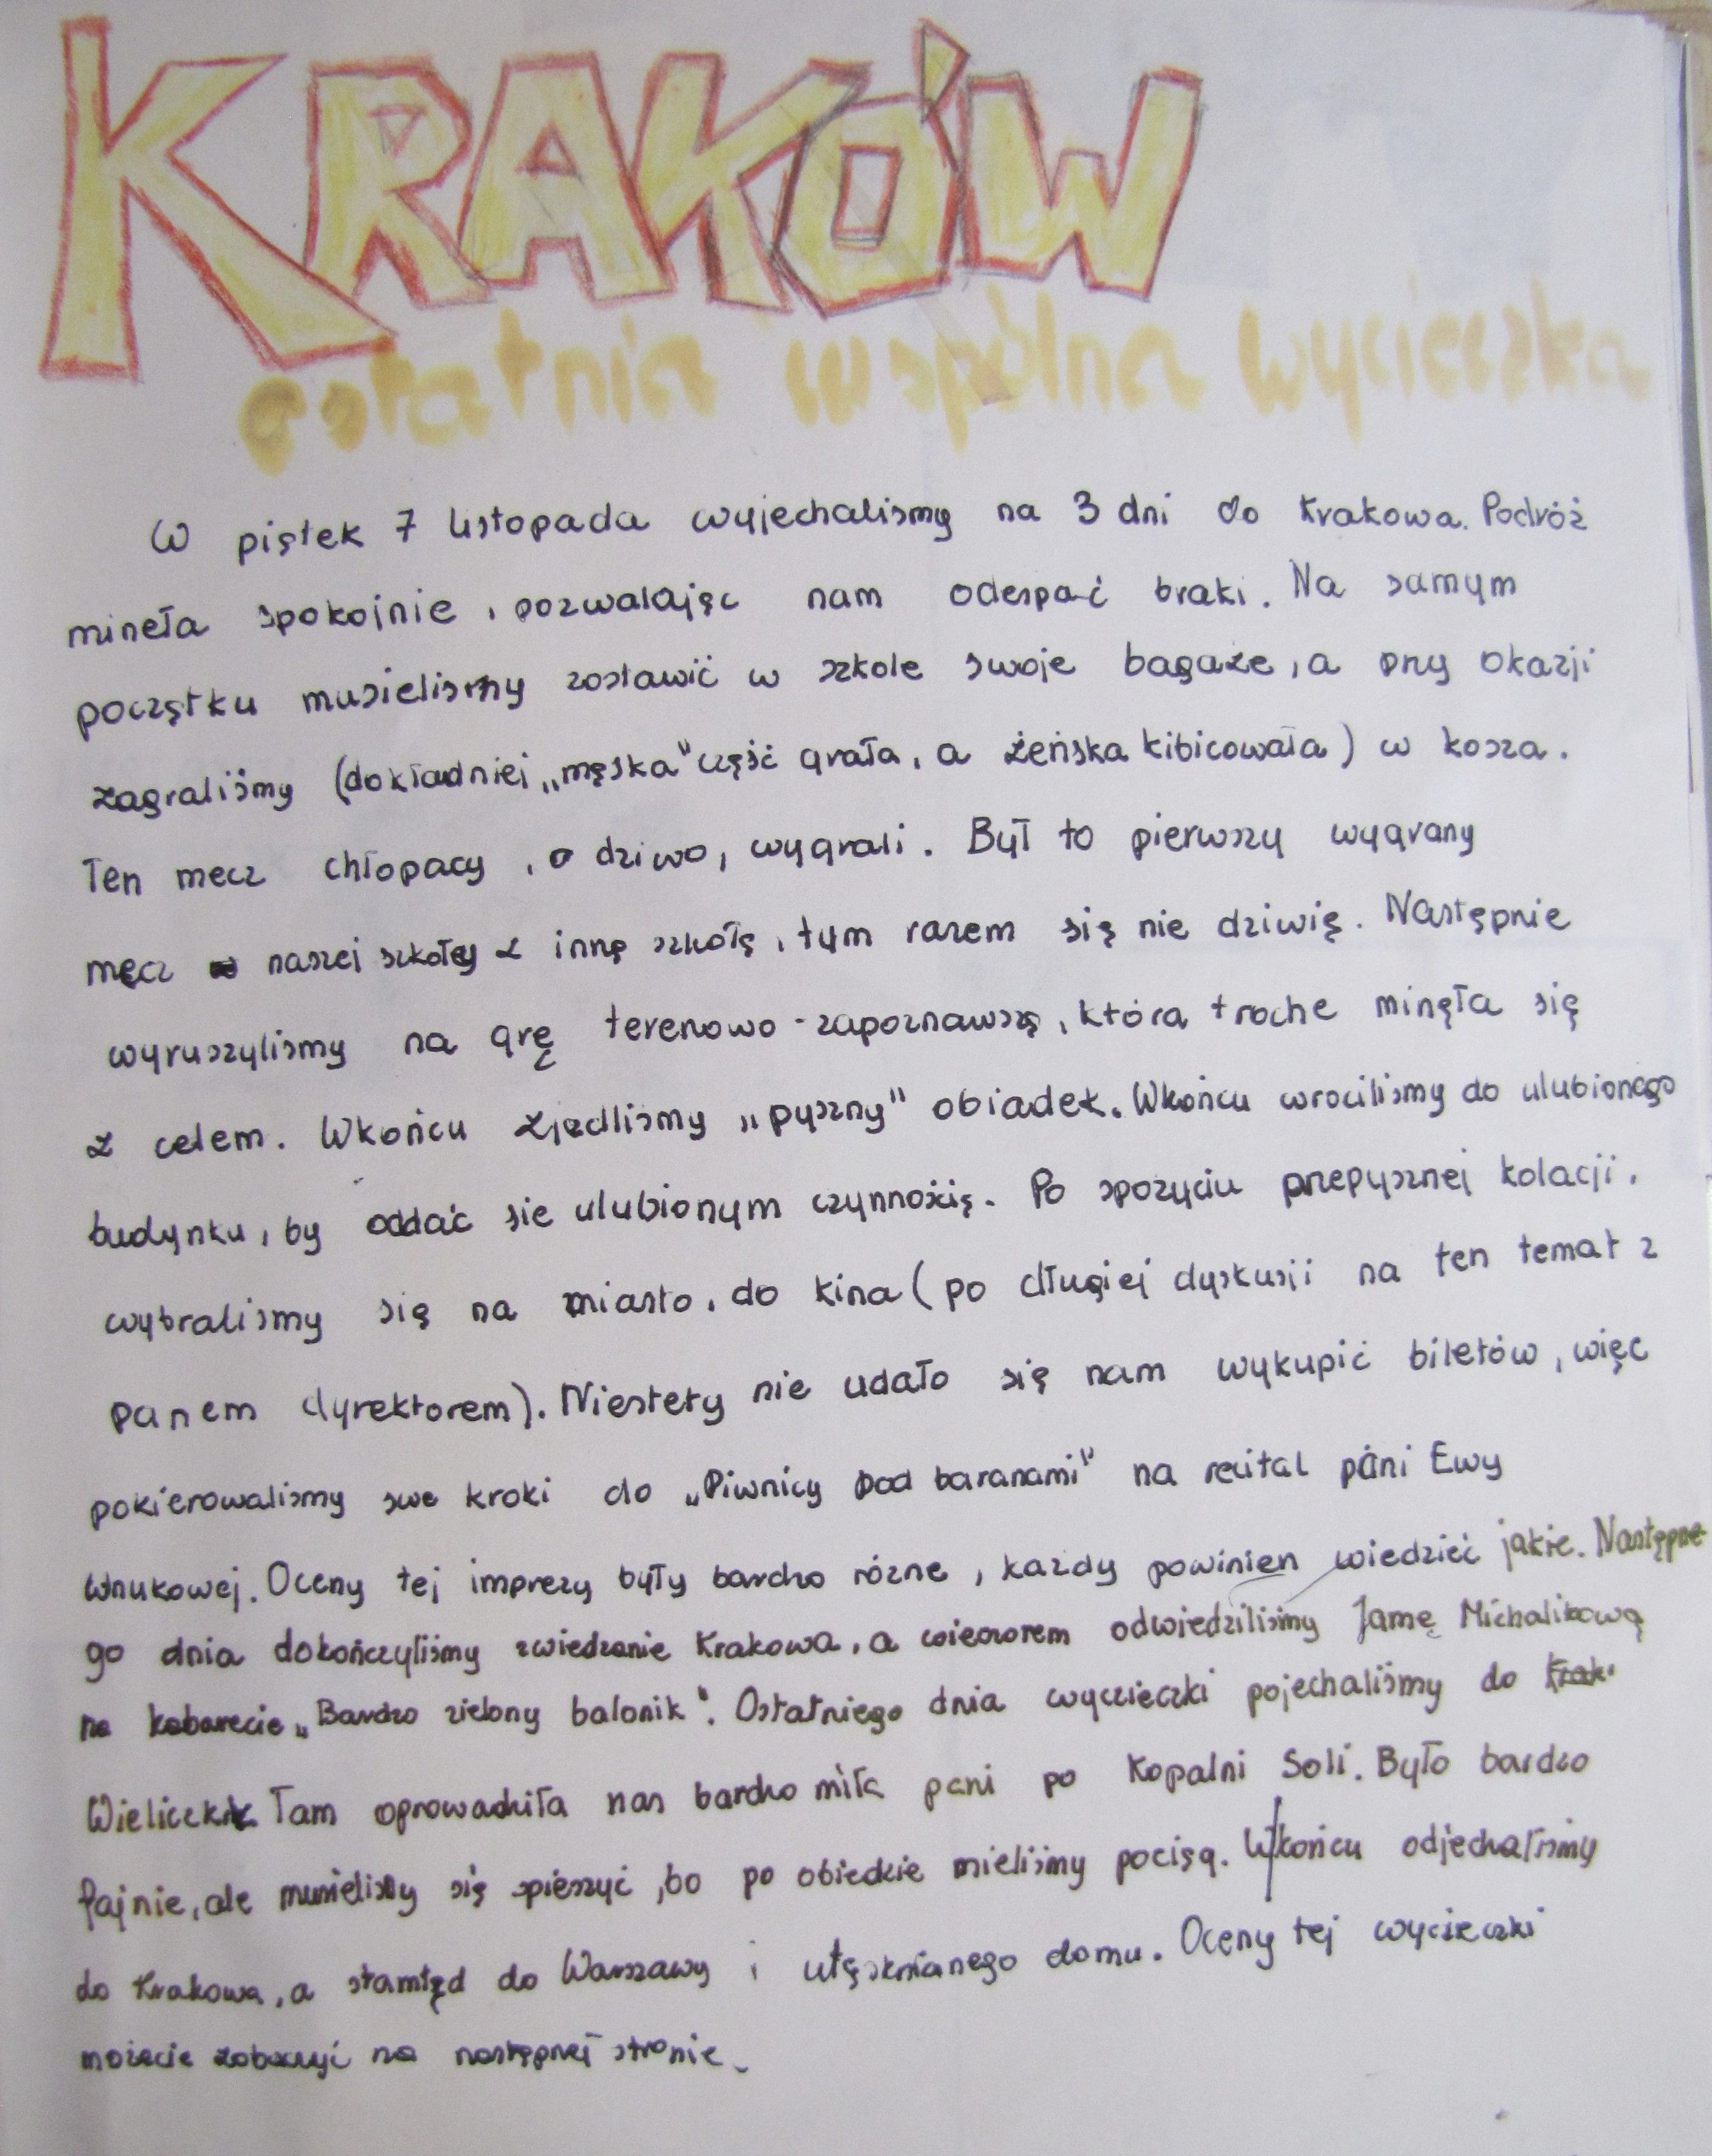 KRAKÓW
ostatnia wspólna wycieczka
W piątek 7 listopada wyjechalismy na 3 dni do Krakowa. Podróż
mineła spokojnie, pozwalając nam odespać braki. Na samym
początku musielismy zostawić w szkole swoje bagaże, a przy okazji
zagraliśmy (dokładniej „męska" część grała, a żeńska kibicowała) w kosza.
Ten mecz chłopacy, o dziwo, wygrali. Był to pierwszy wygrany
mecz naszej szkoły z inną szkołą, tym razem się nie dziwię. Następnie
wyruszylismy na grę terenowo-zapoznawszą, która troche minęła się
z celem. Wkońcu zjedlismy „pyszny" obiadek. Wkońcu wrocilismy do ulubionego
budynku, by oddać sie ulubionym czynnością. Po spozyciu przepysznej kolacji,
wybralismy się na miasto, do kina (po długiej dyskusji na ten temat z
panem dyrektorem). Niestety nie udało się nam wykupić biletów, więc
pokierowalismy swe kroki do „Piwnicy pod baranami" na recital pani Ewy
Wnukowej. Oceny tej imprezy były bardzo rózne, kazdy powinien wiedzieć jakie. Następne-
go dnia dokończyliśmy zwiedzanie Krakowa, a wieczorem odwiedziliśmy Jamę Michalikową
na kabarecie „Bardzo zielony balonik". Ostatniego dnia wycieczki pojechaliśmy do Krak-
Wieliczki. Tam oprowadziła nas bardzo miła pani po Kopalni Soli. Było bardzo
fajnie, ale musieliśmy się spieszyć, bo po obiedzie mieliśmy pociąg. W|końcu odjechaliśmy
do Krakowa, a stamtąd do Warszawy i utęsknianego domu. Oceny tej wycieczki
możecie zobaczyć na następnej stronie.